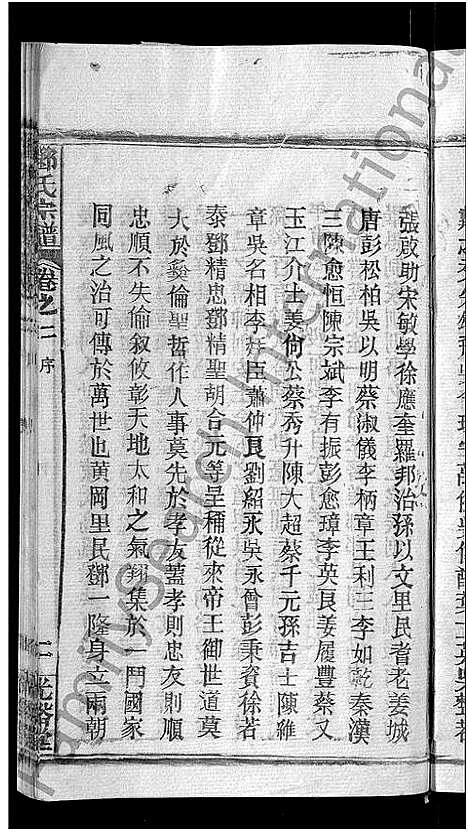 張啟助宋敏學徐應奎羅邦治孫以文里民耆老姜城
唐彭松柏吳以明蔡淑儀李柄章王利三李如乾秦漢
三陳愈恒陳宗斌李有振彭愈璋李英良姜履豐蔡又
玉江介士姜尙公蔡秀升陳大超蔡千元孫吉士陳維
章吳名相李荏臣蕭仲良劉紹永吳永曾彭秉資徐若
泰鄧精忠鄧精聖朝合元等呈稱從來帝王御世道莫
大於彝倫聖哲作人事莫先於孝友蓋孝則忠友則順
忠順不失倫叙攸彰天地太和之氣翔集於一門國家
同風之治可傳於萬世也黃岡里民鄧一隆身立兩朝
鄧氏宗譜
卷之二 序
二 光裕堂
FamilySearch International